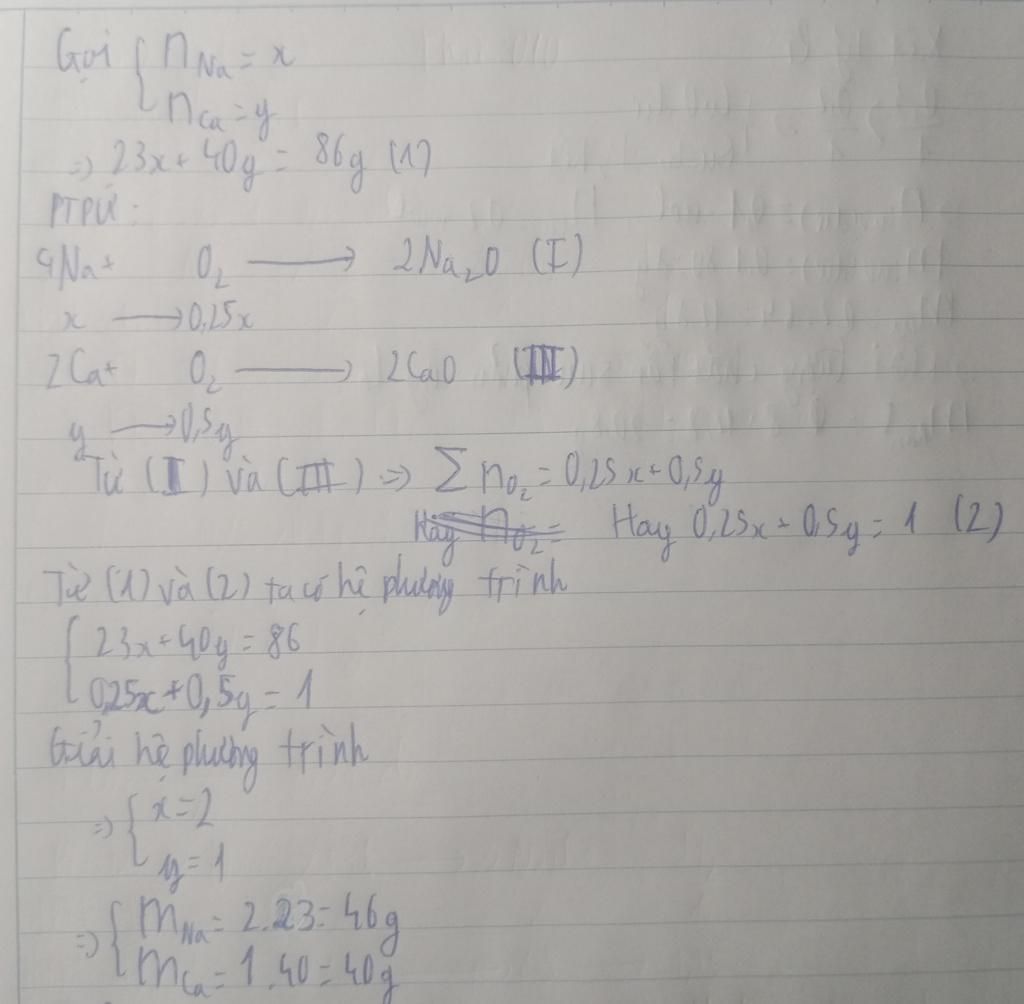 Gọi { nNa = x
nCa = y
=> 23x + 40y = 86g (1)
PTPƯ:
4Na + O₂ ⟶ 2Na₂O (I)
x ⟶ 0,25x
2Ca + O₂ ⟶ 2CaO (II)
y ⟶ 0,5y
Từ (I) và (II) => ∑nO₂ = 0,25x + 0,5y
Hay 0,25x + 0,5y = 1 (2)
Từ (1) và (2) ta có hệ phương trình
{ 23x + 40y = 86
0,25x + 0,5y = 1
Giải hệ phương trình
=> { x = 2
y = 1
=> { mNa = 2.23 = 46g
mCa = 1.40 = 40g